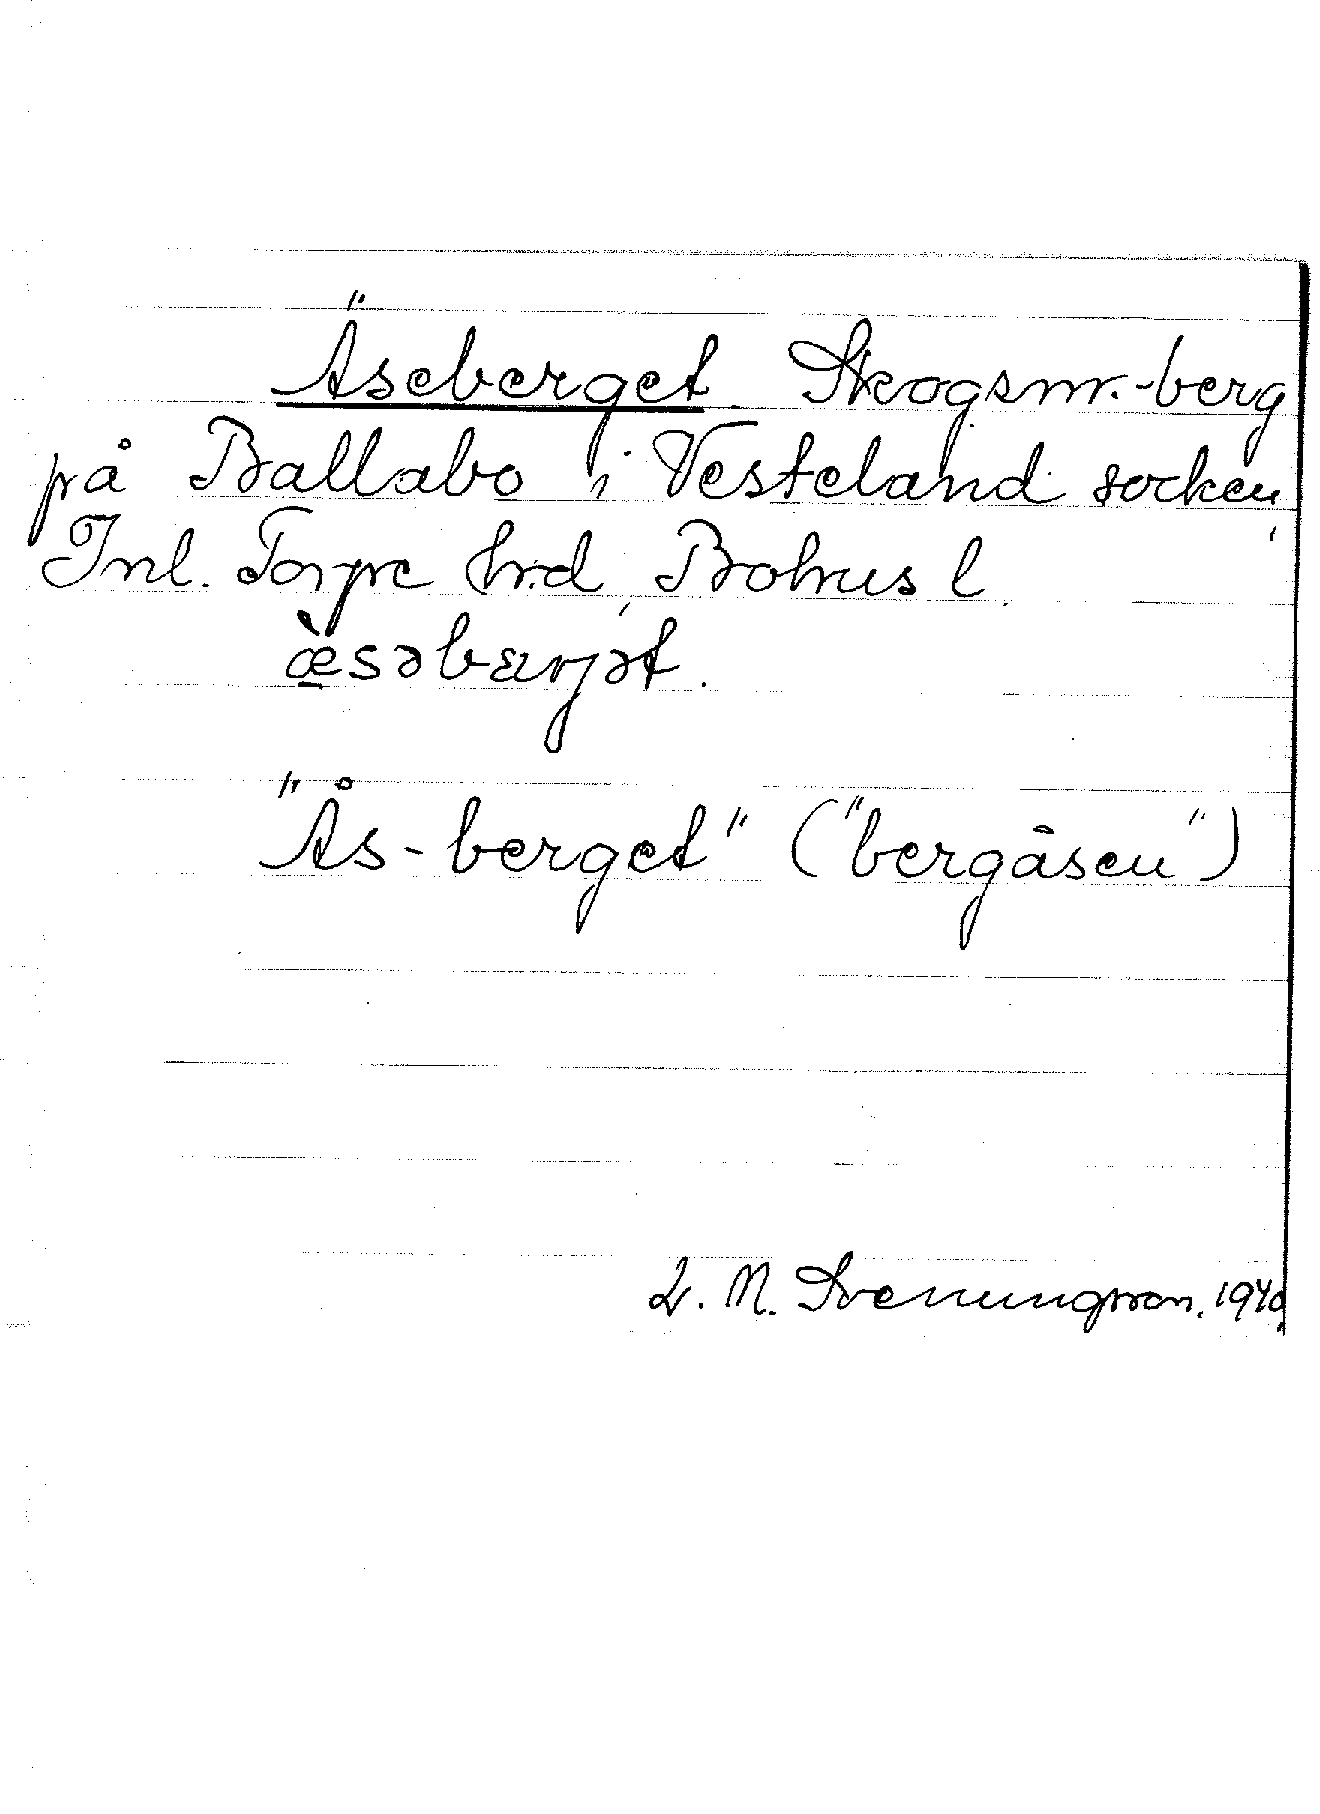 Äseberget Skogsmr.-berg
på Ballabo i Vesteland socken,
Inl. Torpe hrd, Bohus l.
æ̀səbærjət.
"Ås-berget" ("bergåsen")
L. N. Svenungsson. 1940.